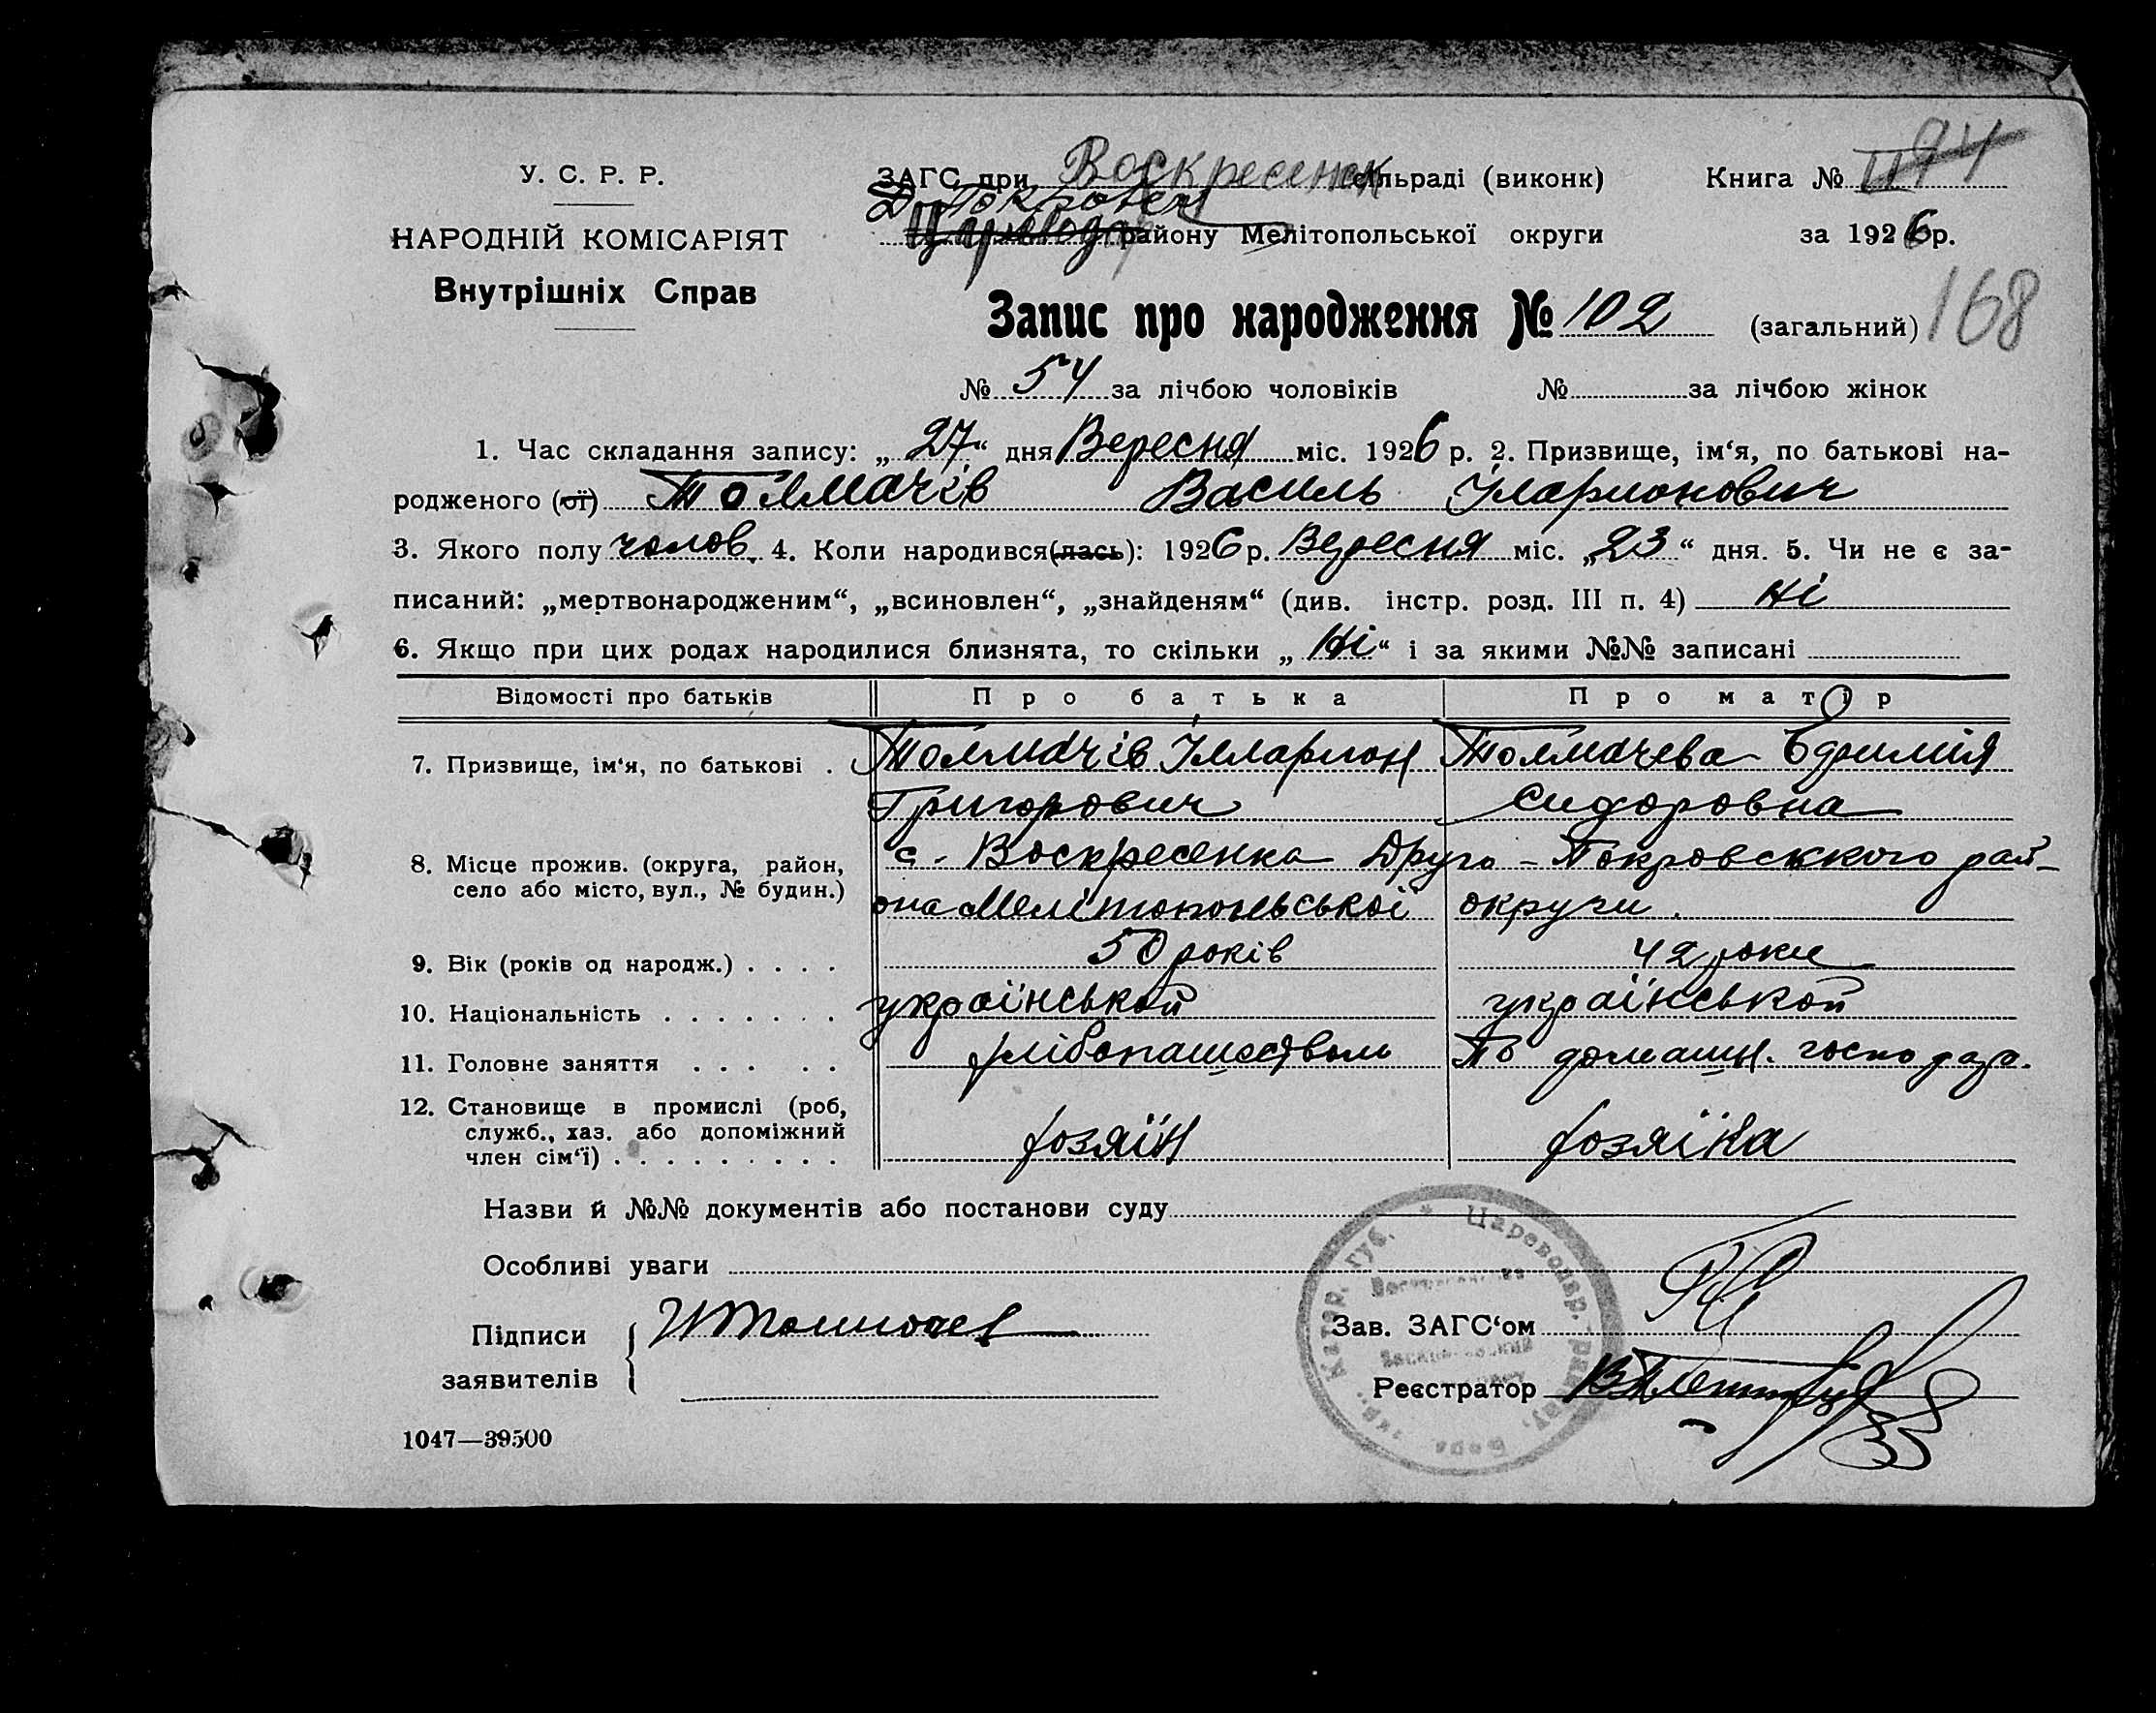 У. С. Р. Р.
НАРОДНІЙ КОМІСАРІЯТ
Внутрішніх Справ
ЗАГС при Воскресенск сільраді (виконк)
Д. Покровск
району Мелітопольської округи
Книга № III 94
за 1926 р.
Запис про народження № 102 (загальний) 168
№ 54 за лічбою чоловіків № за лічбою жінок
1. Час складання запису: „27“ дня Вересня міс. 1926 р. 2. Призвище, ім‘я, по батькові на-
родженого (ої) Толмачів Василь Іларионович
3. Якого полу чолов. 4. Коли народився(лась): 1926 р. Вересня міс. „23“ дня. 5. Чи не є за-
писаний: „мертвонародженим“, „всиновлен“, „знайденям“ (див. інстр. розд. III п. 4) ні
6. Якщо при цих родах народилися близнята, то скільки „ні“ і за якими №№ записані
Відомості про батьків Про батька Про матір
7. Призвище, ім‘я, по батькові . Толмачів Ілларион Толмачева
Григорович Сидоровна
8. Місце прожив. (округа, район, с. Воскресенка Друго-Покровсккого рай-
село або місто, вул., № будин.) она Мелітопольської округи.
9. Вік (років од народж.) . . . . 50 років 42 роки
10. Національність . . . . . . . української української
11. Головне заняття . . . . . хлібопашеством По домашн. господар.
12. Становище в промислі (роб, служб., хаз. або допоміжний член сім‘ї) . . . . . . . . . хозяїн хозяїка
Назви й №№ документів або постанови суду
Особливі уваги
Підписи заявителів И Толмачев
Зав. ЗАГС‘ом
Реєстратор
Цареводар.
1047—39500